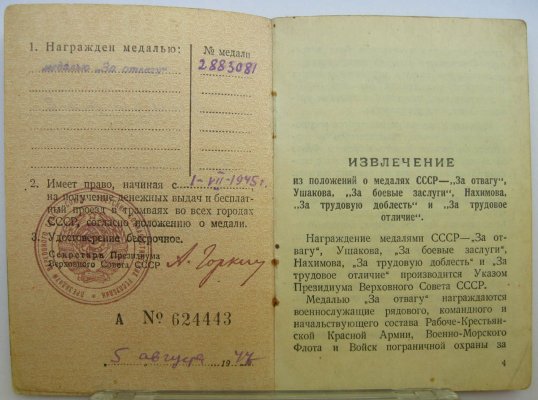 1. Награжден медалью:
№ медали
медалью „За отвагу“
2883081
2. Имеет право, начиная с 1-VII-1945 г.
на получение денежных выдач и бесплат-
ный проезд в трамваях во всех городах
СССР, согласно положению о медали.
3. Удостоверение бессрочное.
Секретарь Президиума
Верховного Совета СССР
А. Горкин
А № 624443
5 августа 1947
ИЗВЛЕЧЕНИЕ
из положений о медалях СССР—„За отвагу“,
Ушакова, „За боевые заслуги“, Нахимова,
„За трудовую доблесть“ и „За трудовое
отличие“.
Награждение медалями СССР—„За от-
вагу“, Ушакова, „За боевые заслуги“,
Нахимова, „За трудовую доблесть“ и „За
трудовое отличие“ производится Указом
Президиума Верховного Совета СССР.
Медалью „За отвагу“ награждаются
военнослужащие рядового, командного и
начальствующего состава Рабоче-Крестьян-
ской Красной Армии, Военно-Морского
Флота и Войск пограничной охраны за
4